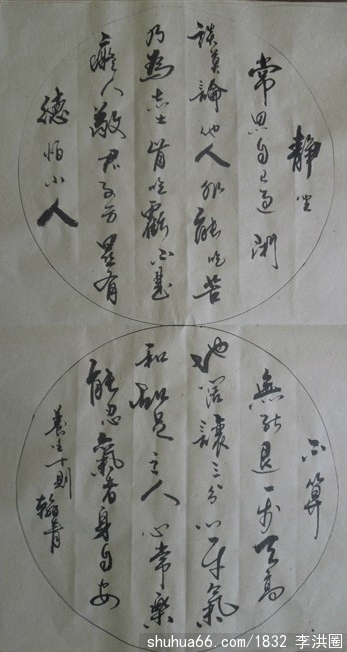 靜坐
常思自己過閑
談莫論他人非能吃苦
乃為志士肯吃虧不是
癡人敬君子方显有
德怕小人
不算
無能退一步天高
地闊讓三分心平氣
和知足之人心常樂
能忍氣者身自安
養生十則 翰青
shuhua66.com/1832 李洪圈